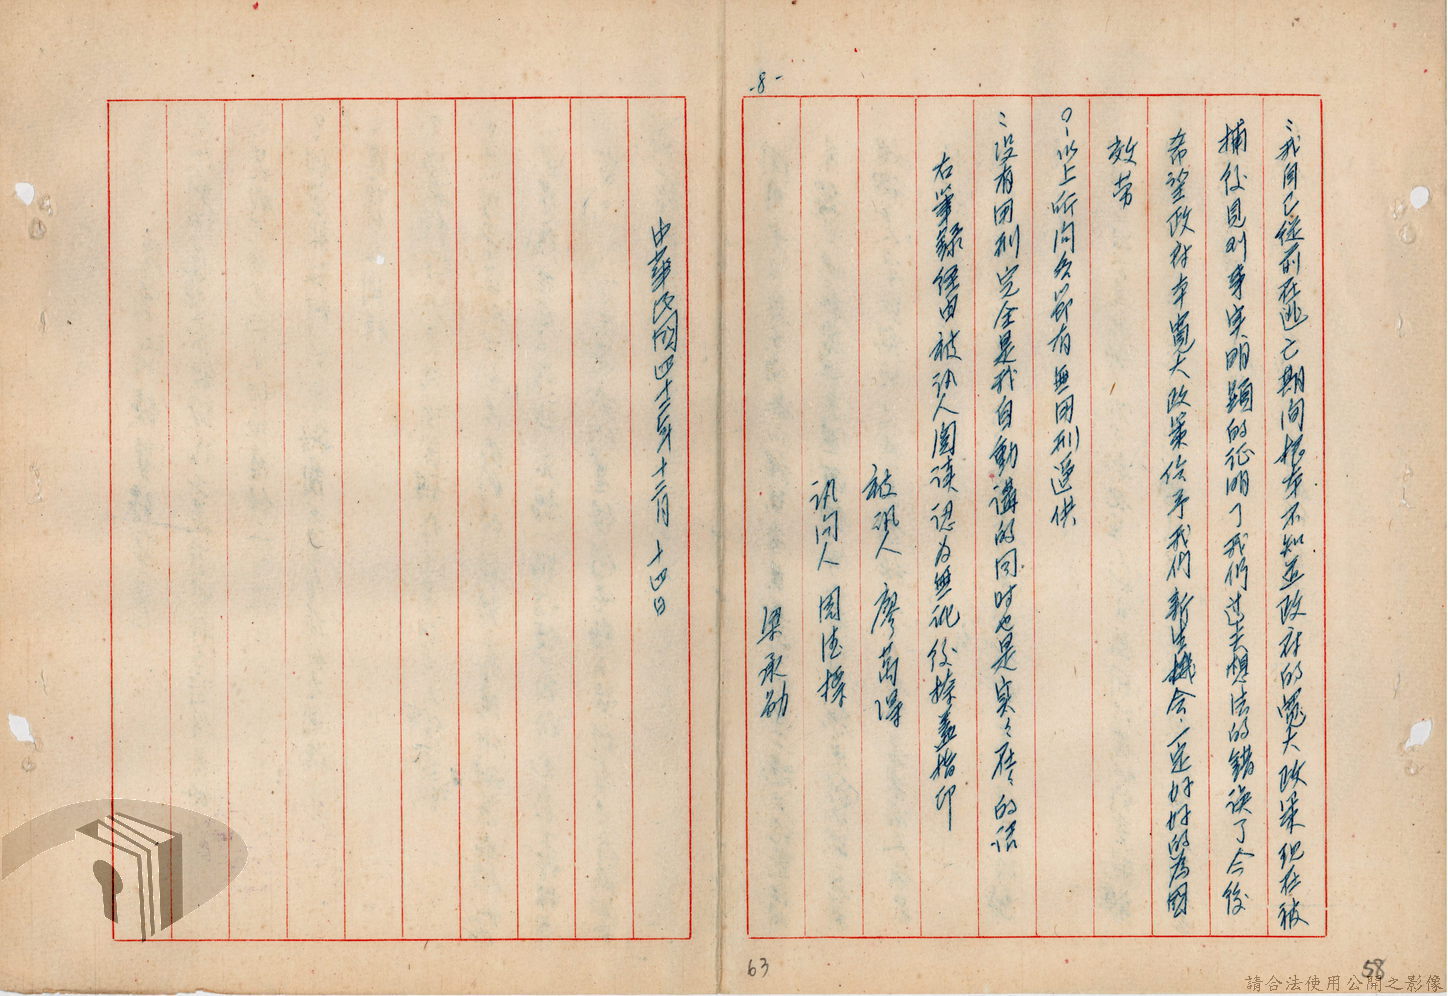 -8-
：我自己從前在逃亡期间根本不知道政府的寬大政策现在被
捕後見到事实明顯的证明了我们过去想法的錯误了今後
希望政府本寬大政策给予我們新生機会，一定好好的為國
效劳
○：以上所问各節有無用刑逼供
：没有用刑完全是我自動講的同时也是实々在々的话
右筆録經由被讯人閱读認为無讹後捺蓋指印
被讯人 廖萬得
讯问人 周德標
梁承勋
中華民國四十二年十二月十四日
63
58
請合法使用公開之影像